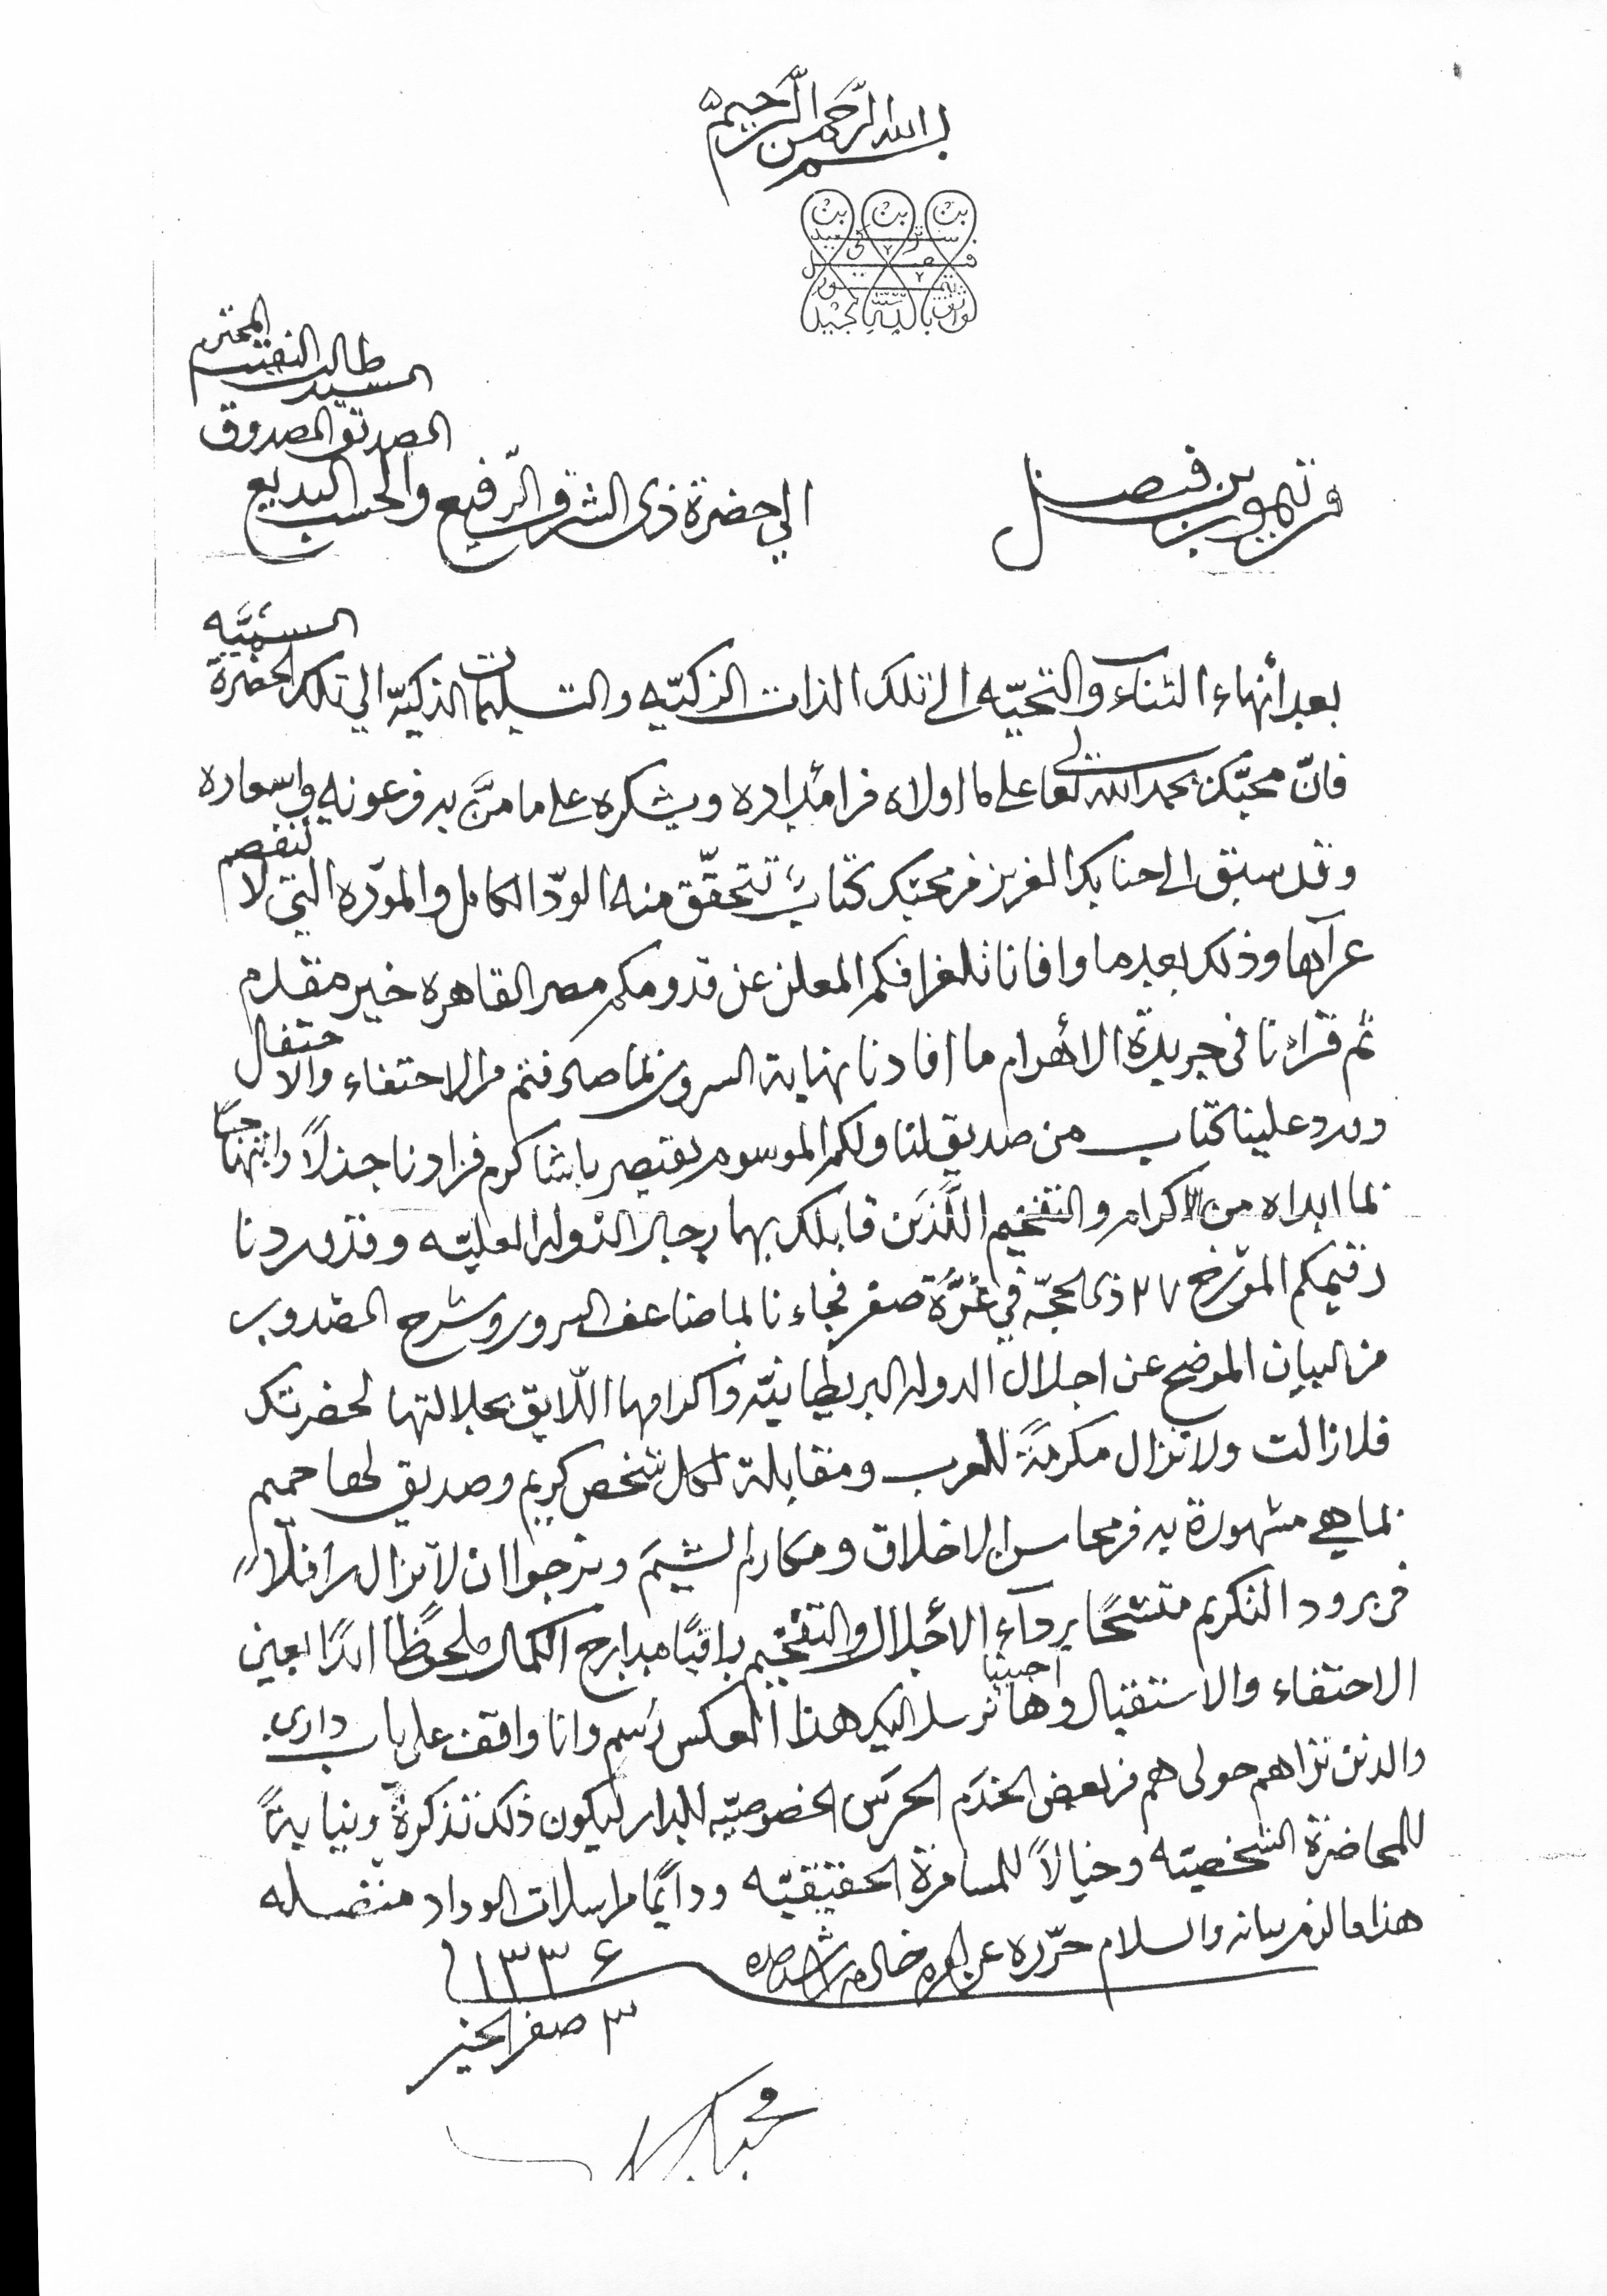 بسم الله الرحمن الرحيم
الواثق بالله المجيد تيمور بن فيصل بن تركي بن سعيد
من تيمور بن فيصل
الى حضرة ذى الشرف الرّفيع والحسب البديع
الصديق الصدوق
السيد طالب النقيب المحترم
بعد أنهاء الثناء والتحيّه الى تلك الذات الزكيّه والتسليمات الذكيّه الى تلك الحضرة السميَّه
فانّ محبّكم يحمد الله تعالى على ما اولاه من امداده ويشكره على ما منَّ به من عونه واسعاده
وقد سبق الى جنابكم العزيز من محبّكم كتابٌ تتحقّق منه الودّ الكامل والمودّه التي لا تنفصم
عراها وذلك بعد ما وافانا تلغرافكم المعلن عن قدومكم مصر القاهره خير مقدم
ثم قراءنا فى جريدة الأهرام ما افادنا نهاية السرور بما صادفتم من الاحتفاء والاحتفال
وورد علينا كتاب من صديق لنا ولكم الموسوم بقيصر باشا كرم فزادنا جذلاً وابتهاجاً
بما ابداه من الاكرام والتفخيم اللَّذَين قابلك بهما رجال الدوله العليّه وقد وردنا
رقيمكم المؤرخ ٢٧ ذى الحجّه في غُرَّة صفر فجاءنا بما ضاعف السرور وشرح الصدور
من البيان الموضح عن اجلال الدوله البريطانيّه واكرامها اللّايق بجلالتها لحضرتك
فلا زالت ولا تزال مكرمةً للعرب ومقابلة لكل شخص كريم وصديق لها حميم
بما هي مشهورة به من محاسن الاخلاق ومكارم الشيَم ونرجوا ان لا تزال رافلاً
فى برود التكريم متشحًا برداء الأجلال والتفخيم راقيًا مدارج الكمال ملحوظًا ابدًا بعين
الاحتفاء والاستقبال وها احببنا نرسل اليكم هذا العكس رُسم وانا واقف على باب دارى
والذين تراهم حولى هم من بعض الخدَم الحرَس الخصوصيّه للدار ليكون ذلك تذكرةً ونيابةً
للمحاضرة الشخصيّه وخيالاً للمسامرة الحقيقيّه ودائمًا مراسلات الوداد متصله
هذا ما لزم بيانه والسلام حرّره عن امره خادمه
١٣٣٦
٣ صفر الخير